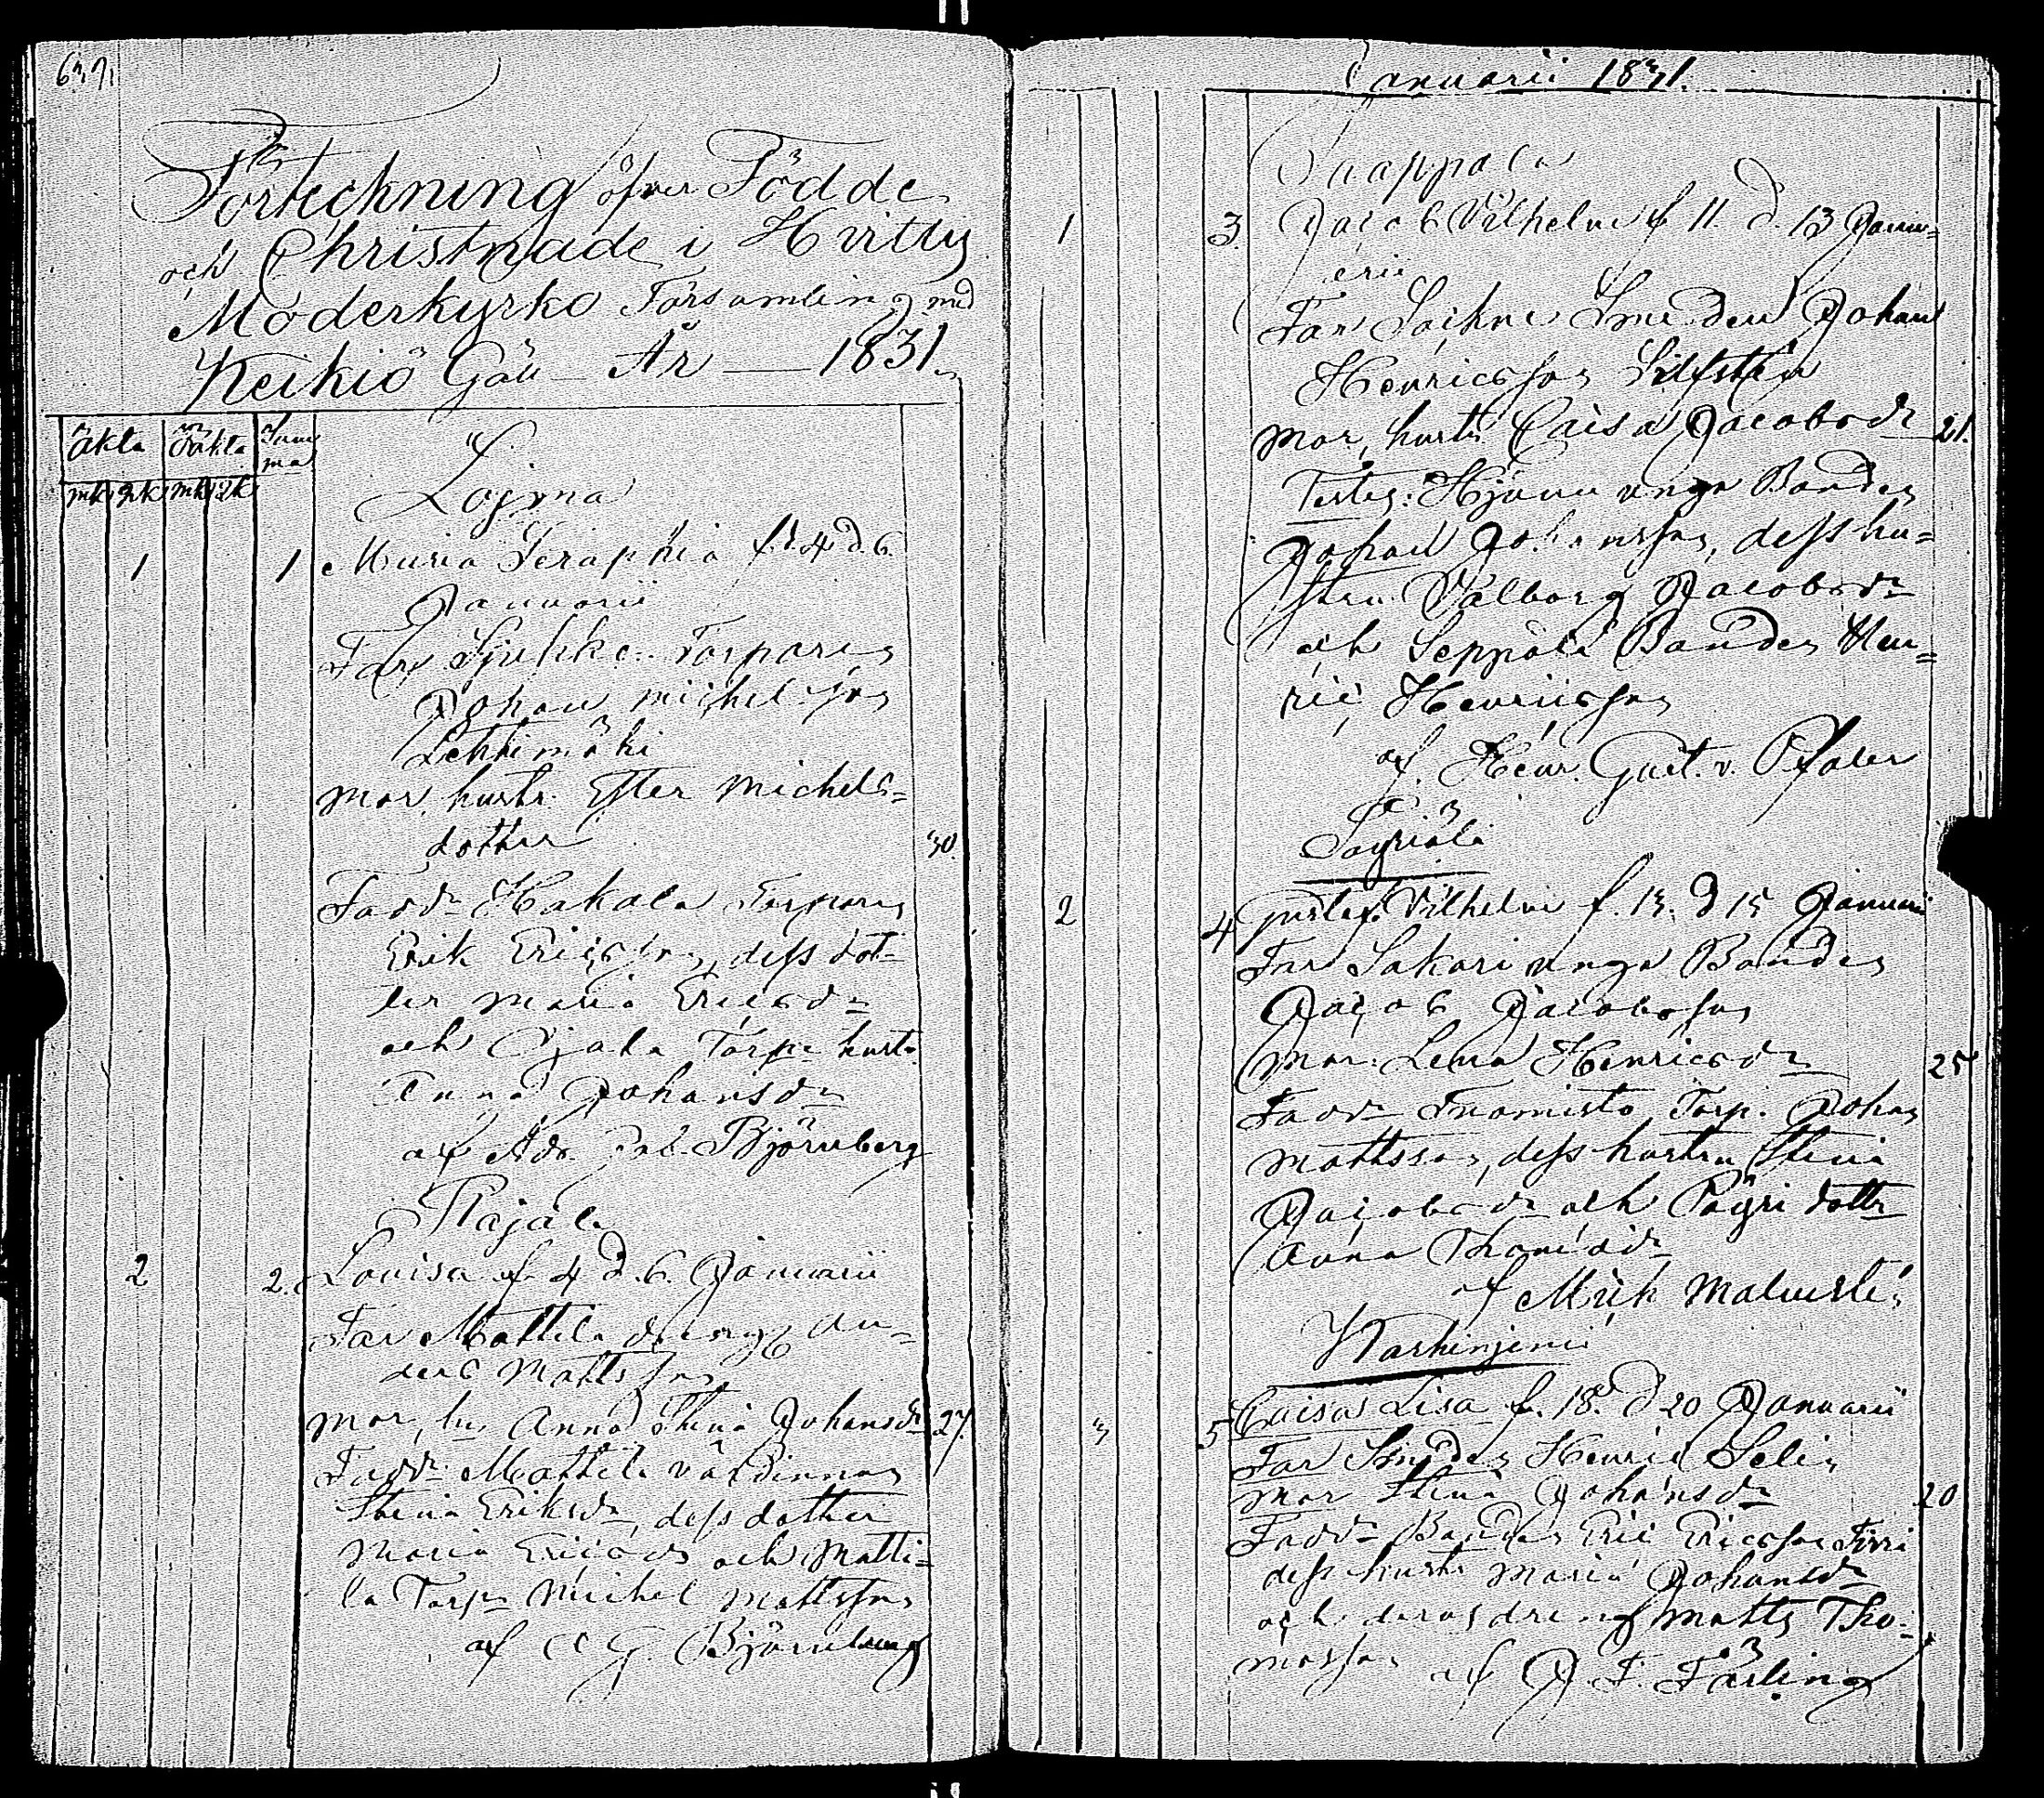 639,
Förteckning öfver Födde
och Christnade i Hvittis
Moderkyrko Församling med
Keikiö Gäll År — 1831.
äkta oäkta Sum
ma
mk qk mk qk
Loima
1 1 Maria Seraphia f. d. 4 d. 6.
Januarii
Far Torparen
Johan Michelsson
Lehtimäki
Mor, hustr. Ester Michels=
dotter 30.
Fadd. Hakala Torparen
Erik Ericsson, dess dot=
ter Maria Ericsdr
och Ojala Torp. hustr.
Anna Johansdr
af Björnberg
Rajala
2 2. Lovisa f. 4 d. 6. Januarii
Far Mattila dreng An=
ders Mattsson
Mor, hu. Anna Stina Johansdr 27.
Fadd. Mattila värdinnan
Stina Eriksdr, dess dotter
Maria Ericsdr och Matti=
la Torp. Michel Mattsson
af C G. Björnberg
Januarii 1831.
1 3. Jacob Vilhelm f 11. d. 13 Janu=
arii
Far Smeden Johan
Henricsson
Mor, hustr. Caisa Jacobsdr 21.
Testes: unga Bonden
Johan Johansson, dess hu=
stru Valborg Jacobsdr
och Seppälä Bonden Hen=
ric Henricsson
af Henr. Gust. v. Pfaler
2 4 Gustaf Vilhelm f. 13. d 15 Januari
Far Sakari unga Bonden
Jacob Jacobsson
Mor. Lena Henricsdr 25
Fadd. Torp. Johan
Mattsson, dess hustru Stina
Jacobsdr och dottr
Anna
af Malmsté
3 5 Caisa Lisa f. 18. d 20 Januarii
Far Smeden Henric Selin
Mor Stina Johansdr 20
Fadd. Bonden Eric Ericsson
dess hustr Maria Johansdr
och deras dreng Matts Tho=
masson af J. F. Färling